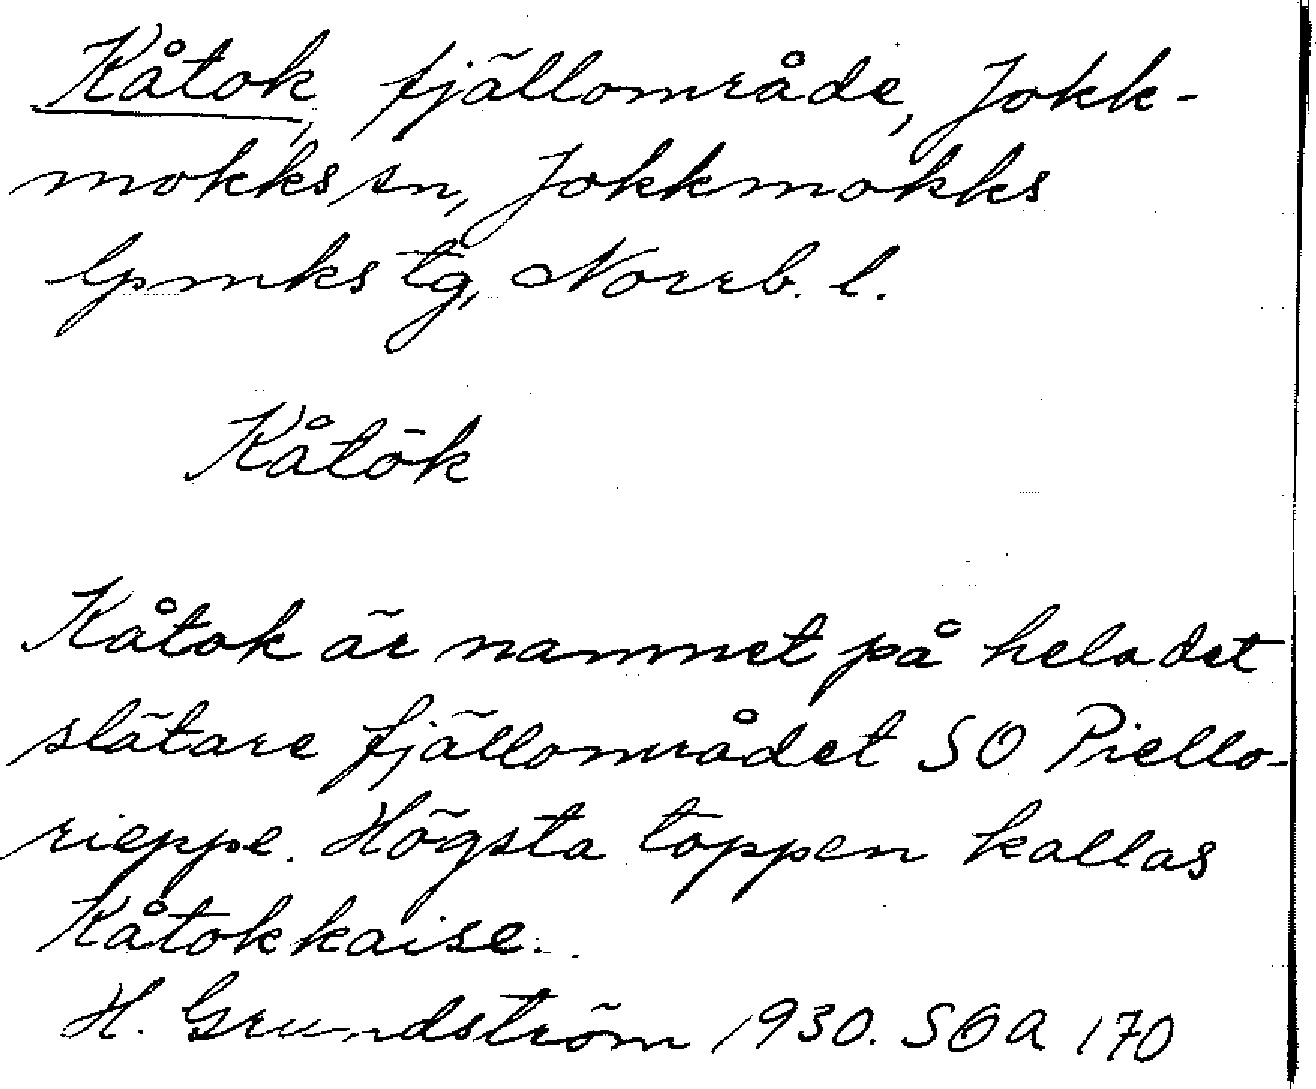 Kåtok, fjällområde, Jokk-
mokks sn, Jokkmokks
lpmks tg, Norrb. l.
Kåtōk
Kåtok är namnet på hela det
slätare fjällområdet SO Piello-
rieppe. Högsta toppen kallas
Kåtokkaise.
H. Grundström 1930. SOA 170